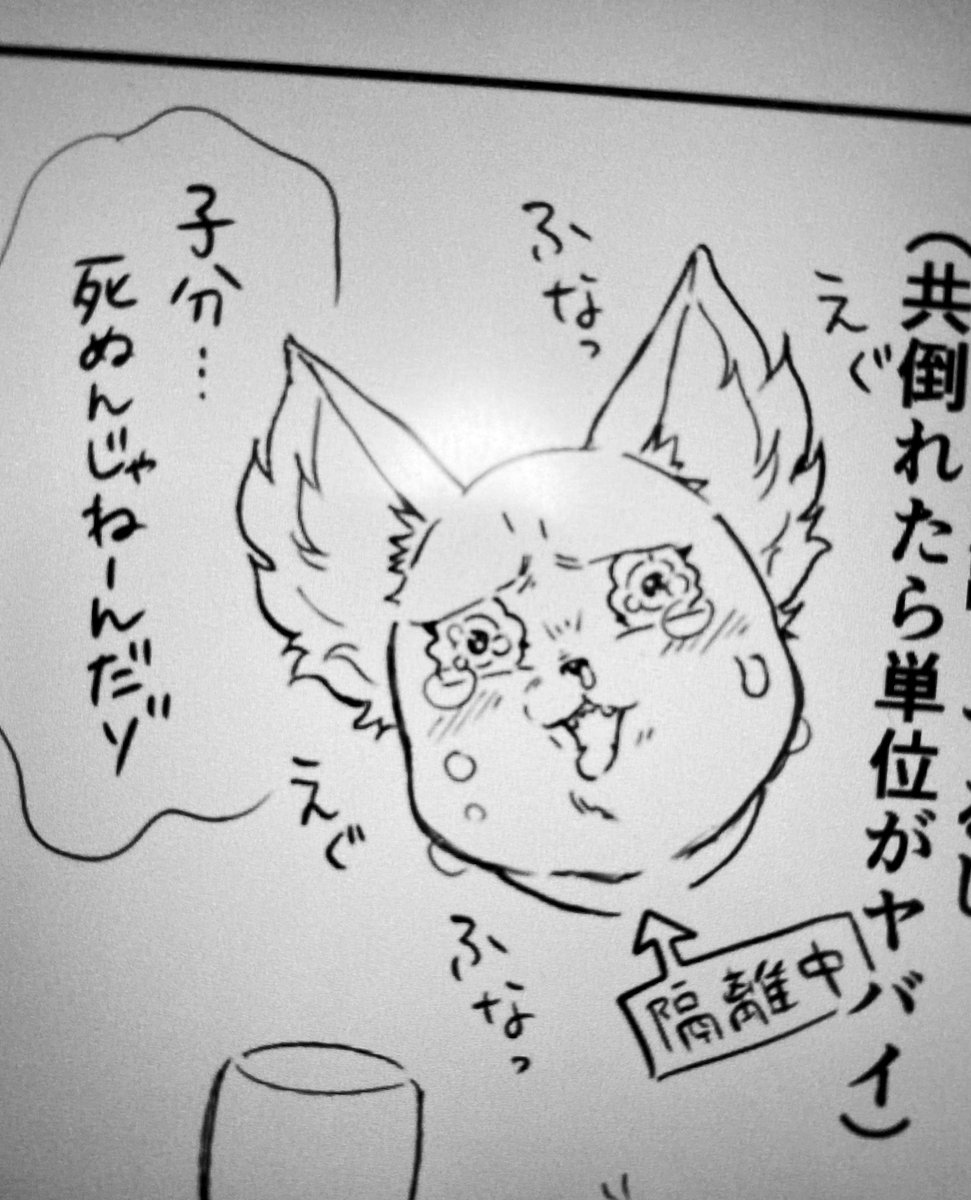 （共倒れたら単位がヤバイ）
えぐ
ふなっ
子分…
死ぬんじゃねーんだゾ
えぐ
ふなっ
隔離中